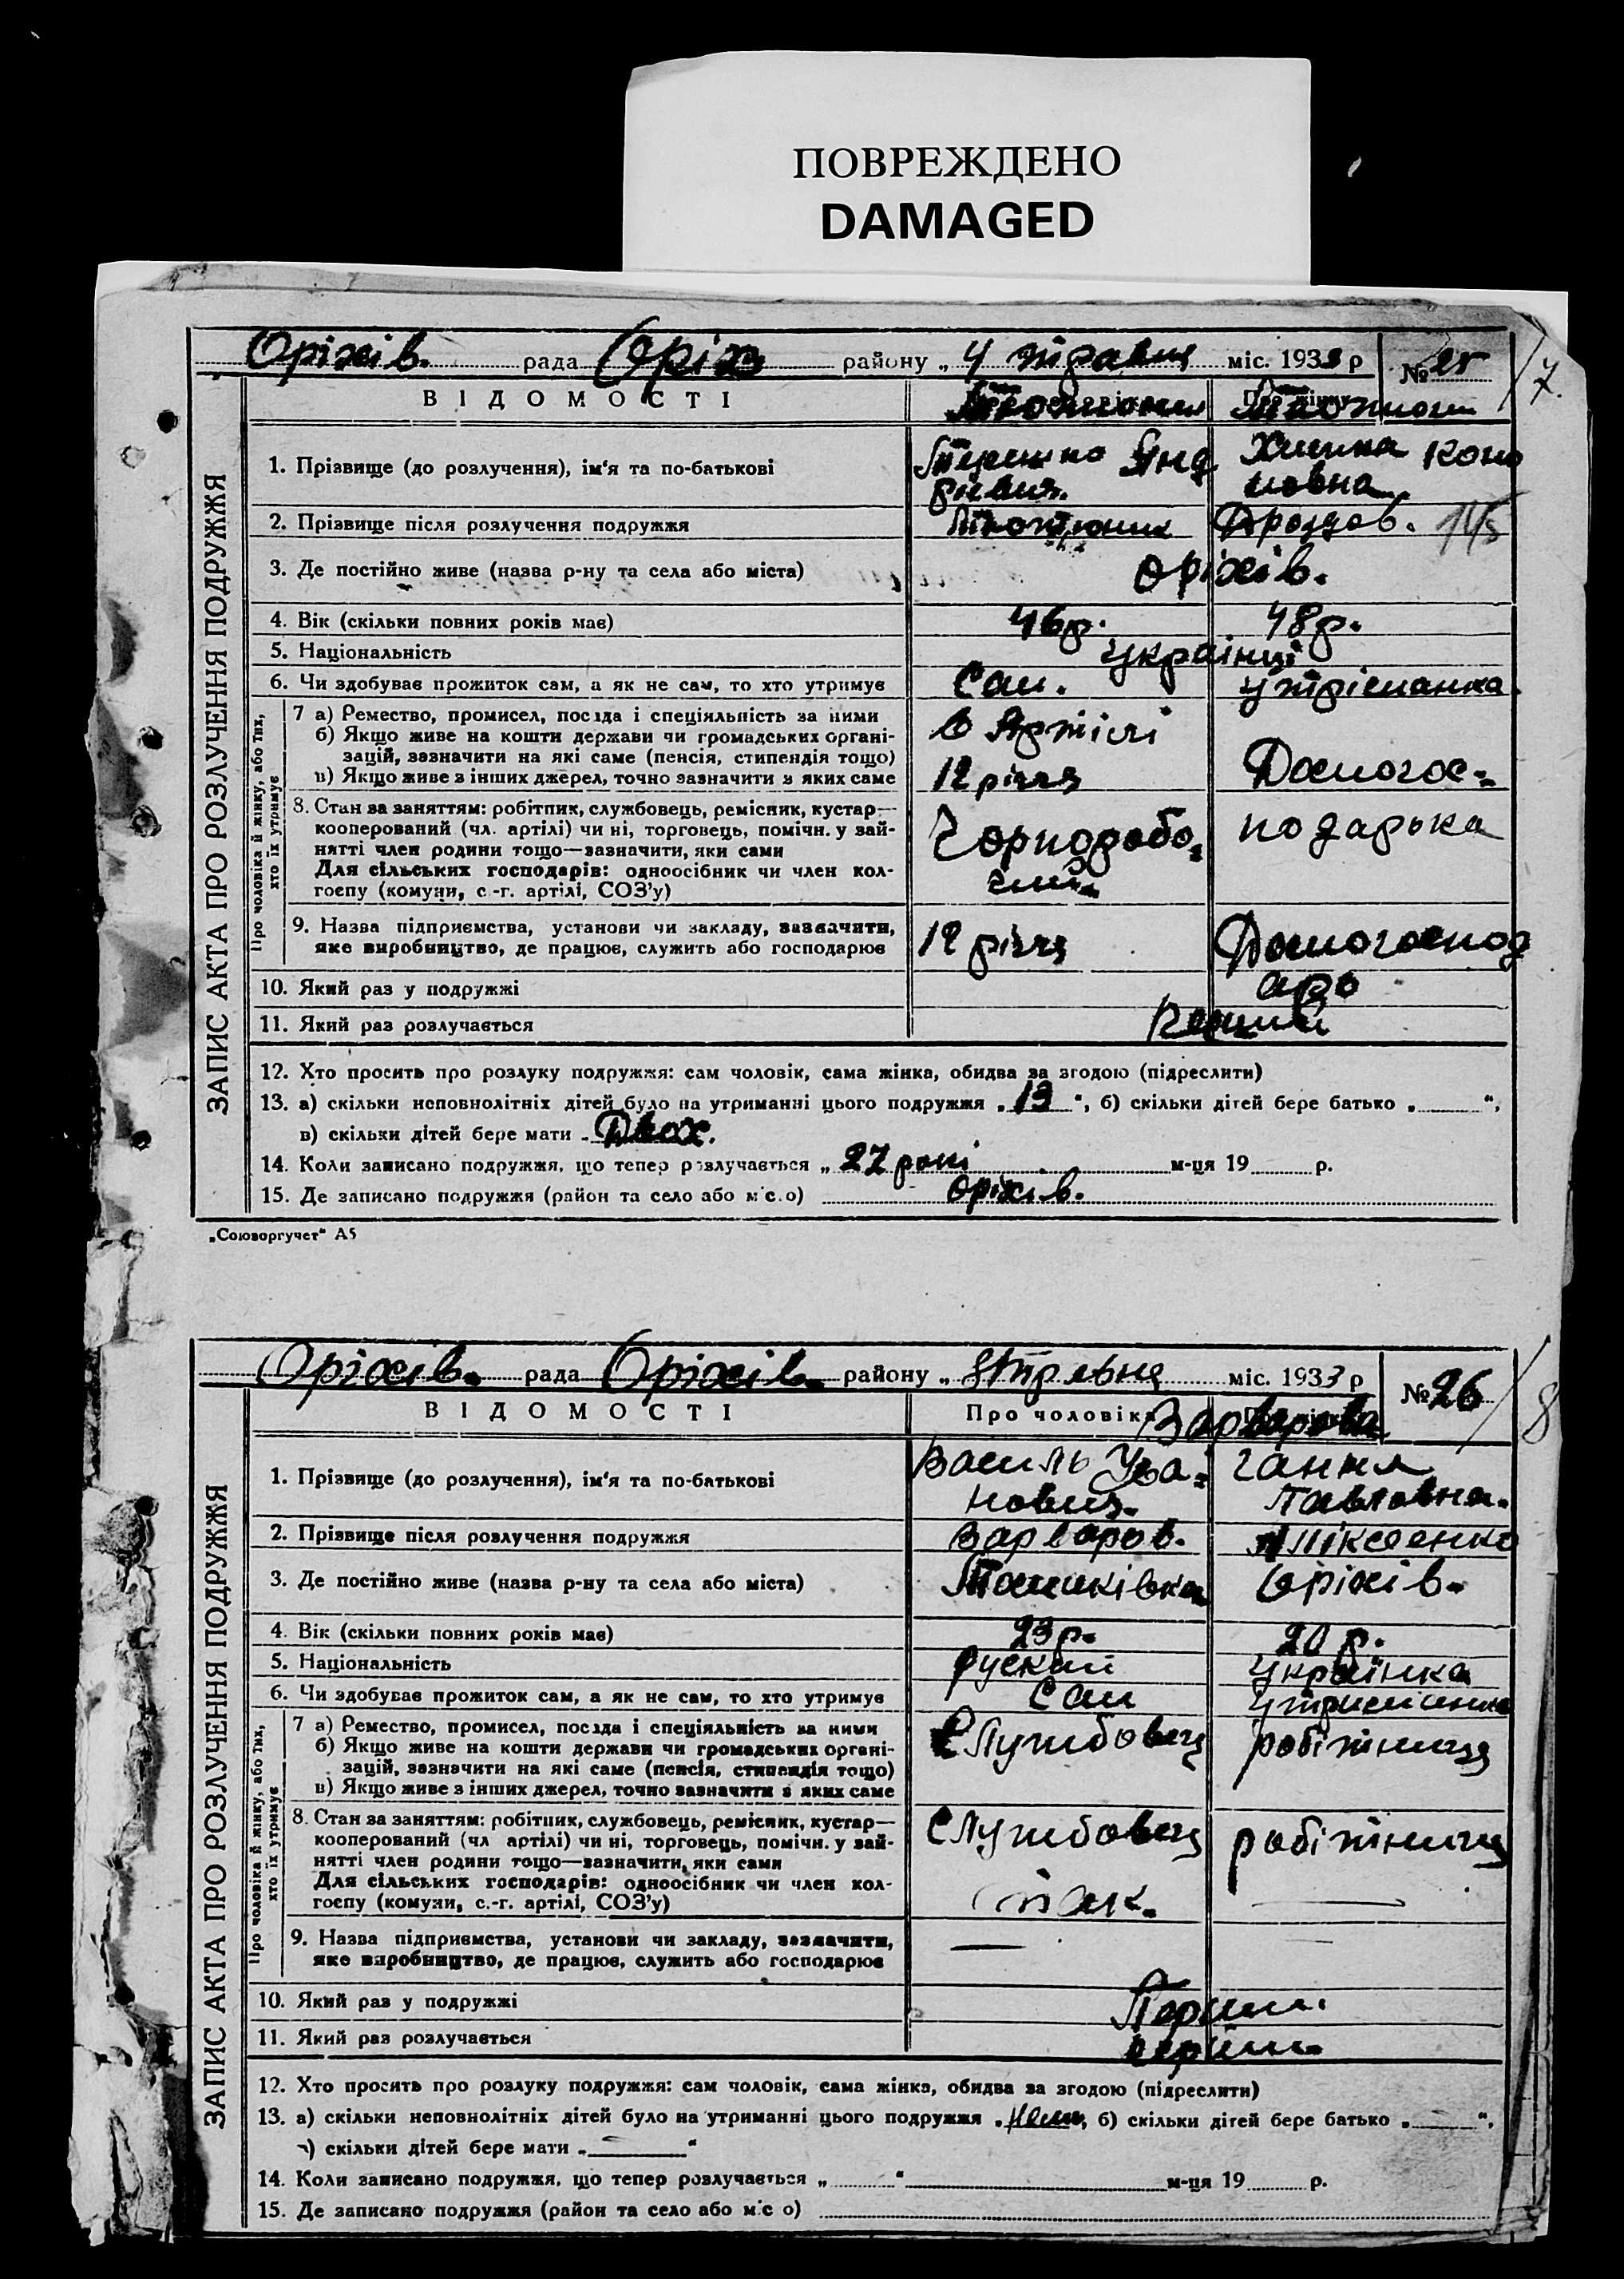 ПОВРЕЖДЕНО
DAMAGED
Оріхів. рада Оріх району „ 4 травня міс. 1933 р № 25
7.
ВІДОМОСТІ
ЗАПИС АКТА ПРО РОЗЛУЧЕННЯ ПОДРУЖЖЯ
1. Прізвище (до розлучення), ім'я та по-батькові
Терешко Анд
рієвич.
2. Прізвище після розлучення подружжя Дроздов. 145
3. Де постійно живе (назва р-ну та села або міста) Оріхів.
4. Вік (скільки повних років має) 46 р. 48 р.
5. Національність Українці
6. Чи здобував прожиток сам, а як не сам, то хто утримує Сам. Утріманка.
Про чоловіка й жінку, або тих, хто їх утримує
7 а) Ремество, промисел, посада і спеціяльність за ними
б) Якщо живе на кошти держави чи громадських органі-
зацій, зазначити на які саме (пенсія, стипендія тощо)
в) Якщо живе з інших джерел, точно зазначити з яких саме
в Артілі
12 річчя
Домогос-
8. Стан за заняттям: робітник, службовець, ремісник, кустар—
кооперований (чл. артілі) чи ні, торговець, помічн. у зай-
нятті член родини тощо—зазначити, яки сами
Для сільських господарів: одноосібник чи член кол-
госпу (комуни, с.-г. артілі, СОЗ'у)
Чорнорабо-
чий
подарька
9. Назва підприємства, установи чи закладу, зазначити,
яке виробництво, де працює, служить або господарює
12 річчя
Домогоспод
арь
10. Який раз у подружжі
11. Який раз розлучається Перший
12. Хто просить про розлуку подружжя: сам чоловік, сама жінка, обидва за згодою (підреслити)
13. а) скільки неповнолітніх дітей було на утриманні цього подружжя „ 13 “, б) скільки дітей бере батько „ “,
в) скільки дітей бере мати „ Двох.
14. Коли записано подружжя, що тепер розлучається „ 27 році м-ця 19 р.
15. Де записано подружжя (район та село або місто) Оріхів.
„Союзоргучет“ А5
Оріхів. рада Оріхів. району „ 8 травня міс. 1933 р № 26
8
ВІДОМОСТІ
Про чоловіка Варварова
ЗАПИС АКТА ПРО РОЗЛУЧЕННЯ ПОДРУЖЖЯ
1. Прізвище (до розлучення), ім'я та по-батькові
Василь Ува-
нович.
Ганна
Павловна.
2. Прізвище після розлучення подружжя Варваров.
3. Де постійно живе (назва р-ну та села або міста) Оріхів.
4. Вік (скільки повних років має) 23 р. 20 р.
5. Національність Руский Українка
6. Чи здобував прожиток сам, а як не сам, то хто утримує Сам
Про чоловіка й жінку, або тих, хто їх утримує
7 а) Ремество, промисел, посада і спеціяльність за ними
б) Якщо живе на кошти держави чи громадських органі-
зацій, зазначити на які саме (пенсія, стипендія тощо)
в) Якщо живе з інших джерел, точно зазначити з яких саме
Службовець робітниця
8. Стан за заняттям: робітник, службовець, ремісник, кустар—
кооперований (чл артілі) чи ні, торговець, помічн. у зай-
нятті член родини тощо—зазначити, яки сами
Для сільських господарів: одноосібник чи член кол-
госпу (комуни, с.-г. артілі, СОЗ'у)
Службовець робітниця
так.
9. Назва підприємства, установи чи закладу, зазначити,
яке виробництво, де працює, служить або господарює
10. Який раз у подружжі Перши.
11. Який раз розлучається перши.
12. Хто просить про розлуку подружжя: сам чоловік, сама жінка, обидва за згодою (підреслити)
13. а) скільки неповнолітніх дітей було на утриманні цього подружжя „ Нема “, б) скільки дітей бере батько „ “,
в) скільки дітей бере мати „ “
14. Коли записано подружжя, що тепер розлучається „ “ м-ця 19 р.
15. Де записано подружжя (район та село або місто)